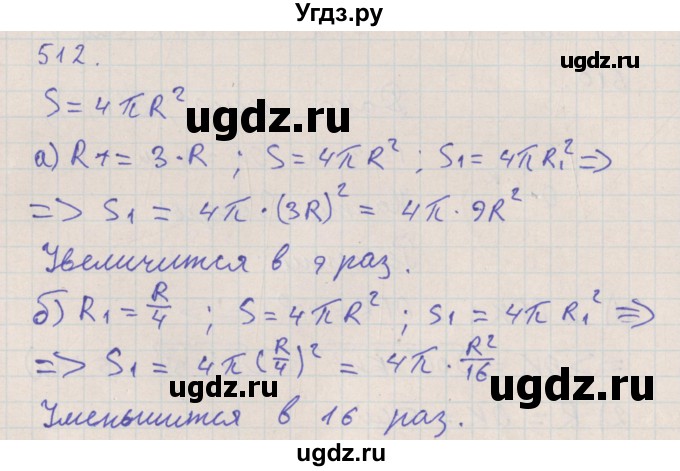 Угдз.ру
512.
S = 4πR²
ugdz.ru
а) R1 = 3·R ; S = 4πR² ; S₁ = 4πR₁² =>
=> S₁ = 4π·(3R)² = 4π·9R²
Увеличится в 9 раз.
б) R₁ = R/4 ; S = 4πR² ; S₁ = 4πR₁² =>
=> S₁ = 4π(R/4)² = 4π·R²/16
ugdz.ru
ugdz.ru
Уменьшится в 16 раз.
ugdz.ru